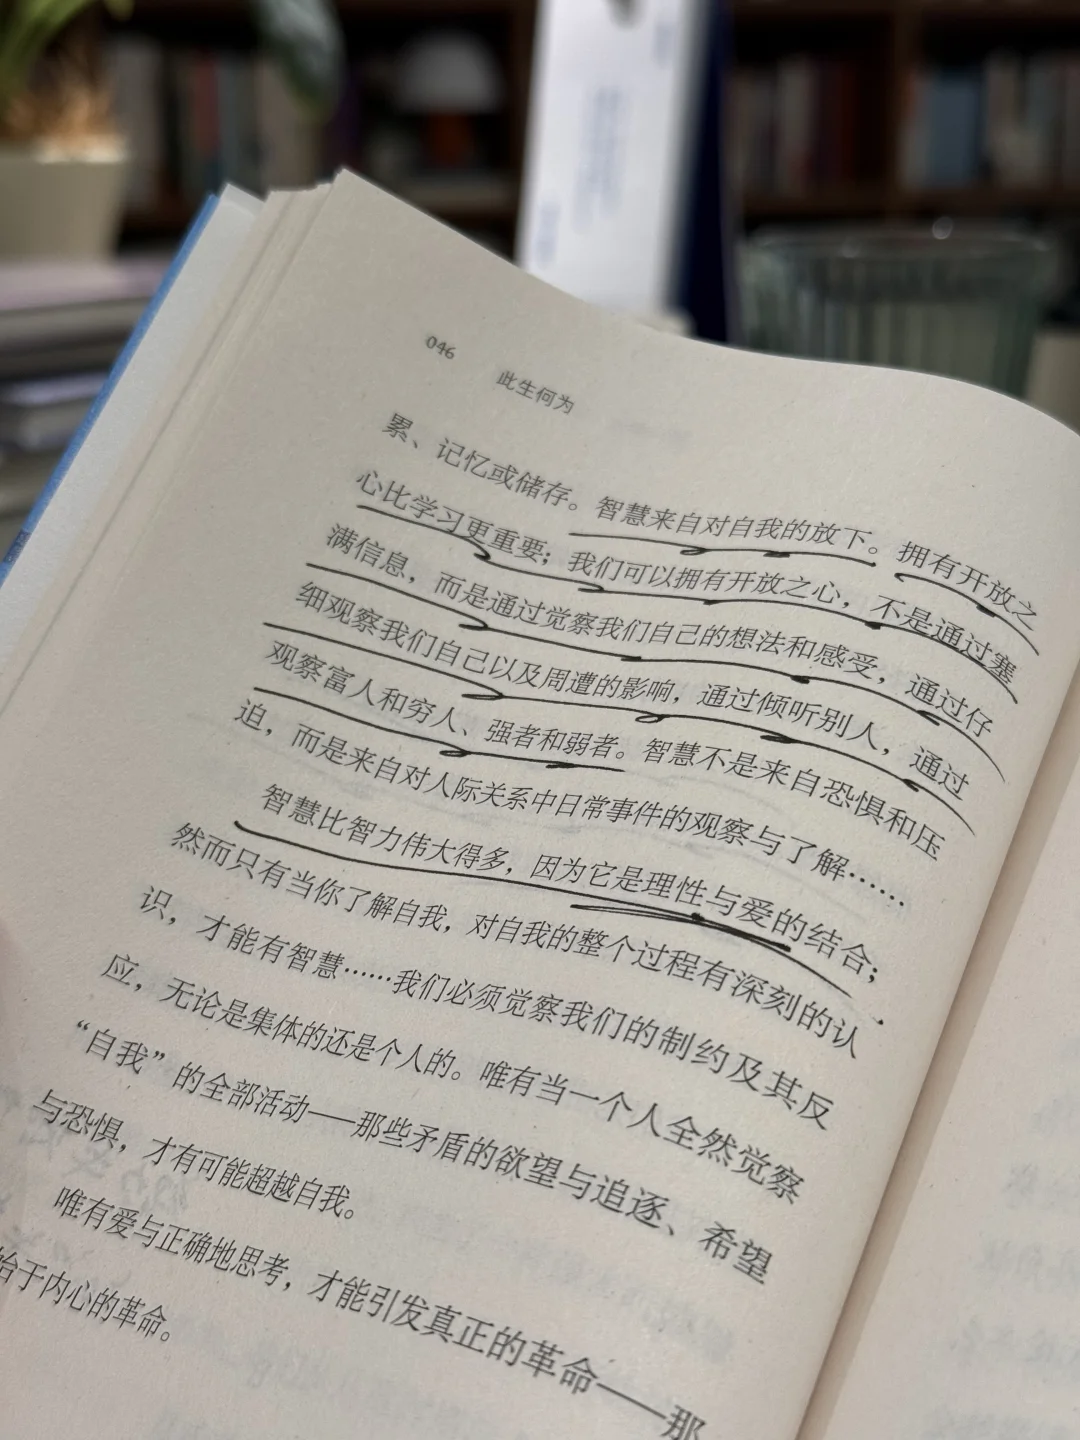 046
此生何为
累、记忆或储存。智慧来自对自我的放下。拥有开放之
心比学习更重要；我们可以拥有开放之心，不是通过塞
满信息，而是通过觉察我们自己的想法和感受，通过仔
细观察我们自己以及周遭的影响，通过倾听别人，通过
观察富人和穷人、强者和弱者。智慧不是来自恐惧和压
迫，而是来自对人际关系中日常事件的观察与了解……
智慧比智力伟大得多，因为它是理性与爱的结合；
然而只有当你了解自我，对自我的整个过程有深刻的认
识，才能有智慧……我们必须觉察我们的制约及其反
应，无论是集体的还是个人的。唯有当一个人全然觉察
“自我”的全部活动——那些矛盾的欲望与追逐、希望
与恐惧，才有可能超越自我。
唯有爱与正确地思考，才能引发真正的革命——那
始于内心的革命。